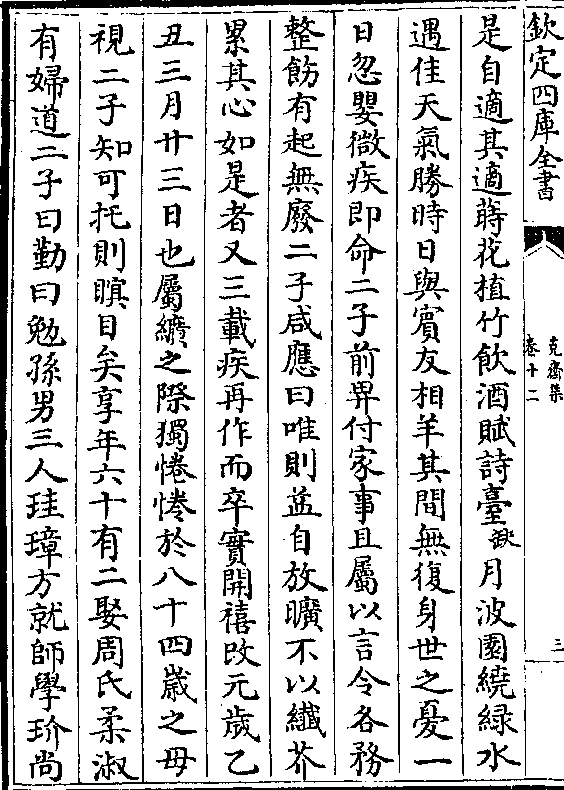 欽定四庫全書
克齋集
卷十二
三
是自適其適蒔花植竹飲酒賦詩臺缺月波園繞綠水
遇佳天氣勝時日與賓友相羊其間無復身世之憂一
日忽嬰微疾即命二子前畀付家事且屬以言令各務
整飭有起無廢二子咸應曰唯則益自放曠不以纖芥
累其心如是者又三載疾再作而卒實開禧改元歲乙
丑三月廿三日也屬纊之際獨惓惓於八十四歲之母
視二子知可托則瞑目矣享年六十有二娶周氏柔淑
有婦道二子曰勤曰勉孫男三人珪璋方就師學玠尚